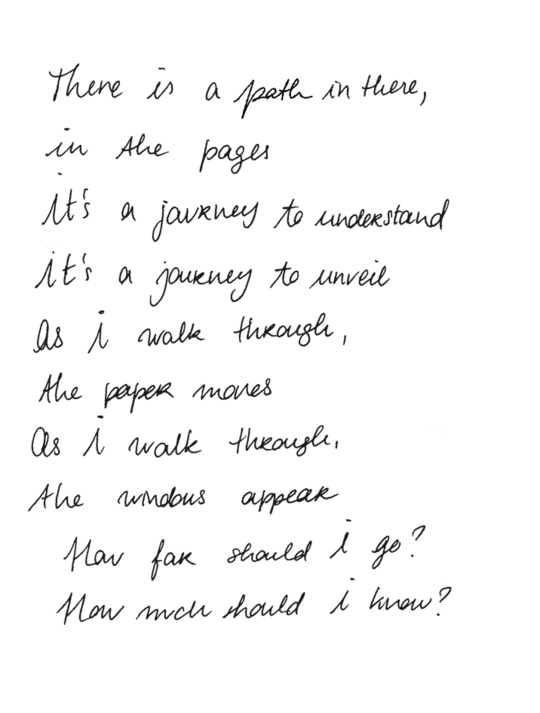 There is a path in there,
in the pages
it's a journey to understand
it's a journey to unveil
As i walk through,
the paper moves
As i walk through,
the windows appear
How far should i go?
How much should i know?